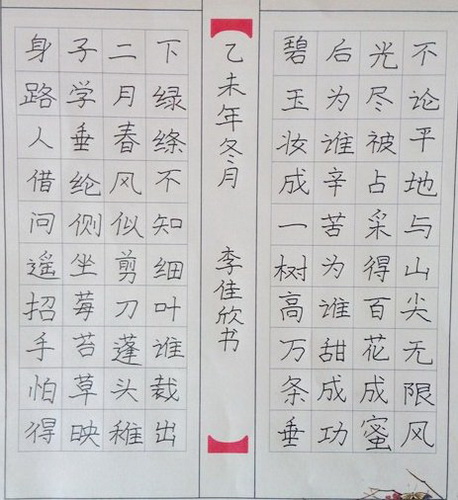 不论平地与山尖无限风
光尽被占采得百花成蜜
后为谁辛苦为谁甜成功
碧玉妆成一树高万条垂
下绿绦不知细叶谁裁出
二月春风似剪刀蓬头稚
子学垂纶侧坐莓苔草映
身路人借问遥招手怕得
乙未年冬月 李佳欣书